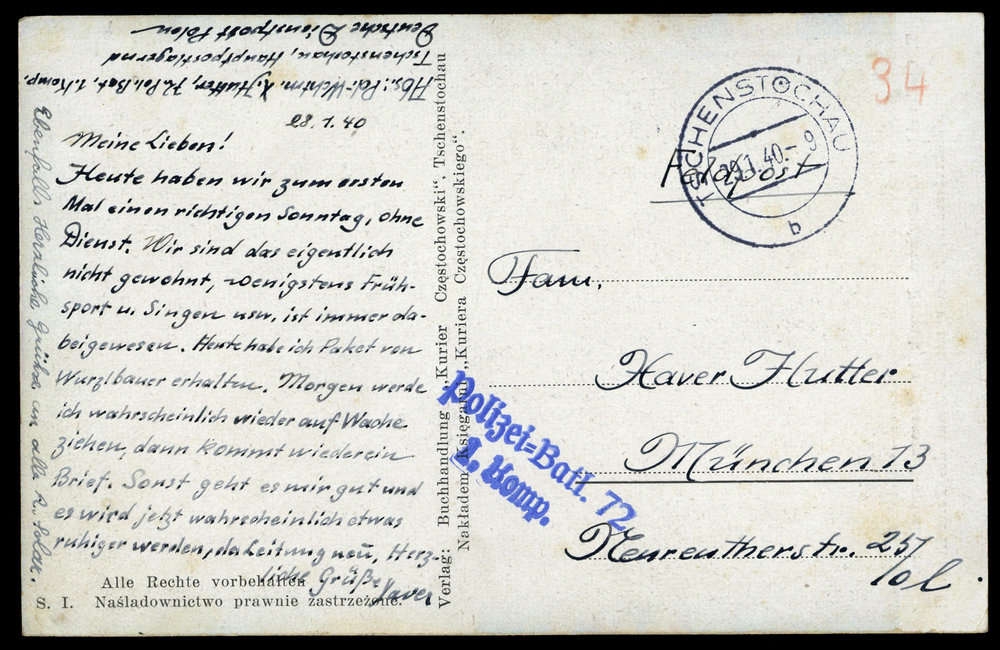 Abs.: Pol. Wchtm. X. Hutter, R. Pol. Bat. 1. Komp.
Tschenstochau, Hauptpostlagernd
Deutsche Dienstpost Polen
28.1.40
Meine Lieben!
Heute haben wir zum ersten
Mal einen richtigen Sonntag, ohne
Dienst. Wir sind das eigentlich
nicht gewohnt, wenigstens Früh-
sport u. Singen usw. ist immer da-
beigewesen. Heute habe ich Paket von
Wurzlbauer erhalten. Morgen werde
ich wahrscheinlich wieder auf Wache
ziehen, dann kommt wieder ein
Brief. Sonst geht es mir gut und
es wird jetzt wahrscheinlich etwas
ruhiger werden, da Leitung neu. Herz-
liche Grüße Xaver
Ebenfalls Herzliche Grüße an alle
Alle Rechte vorbehalten
S. I. Naśladownictwo prawnie zastrzeżone.
Verlag: Buchhandlung „Kurier Częstochowski“, Tschenstochau
Nakładem Księgarni „Kuriera Częstochowskiego“.
34
TSCHENSTOCHAU
29.1.40.- 9
b
Feldpost
Fam.
Xaver Hutter
München 13
Polizei=Batl. 72
1. Komp.
Neureutherstr. 25/